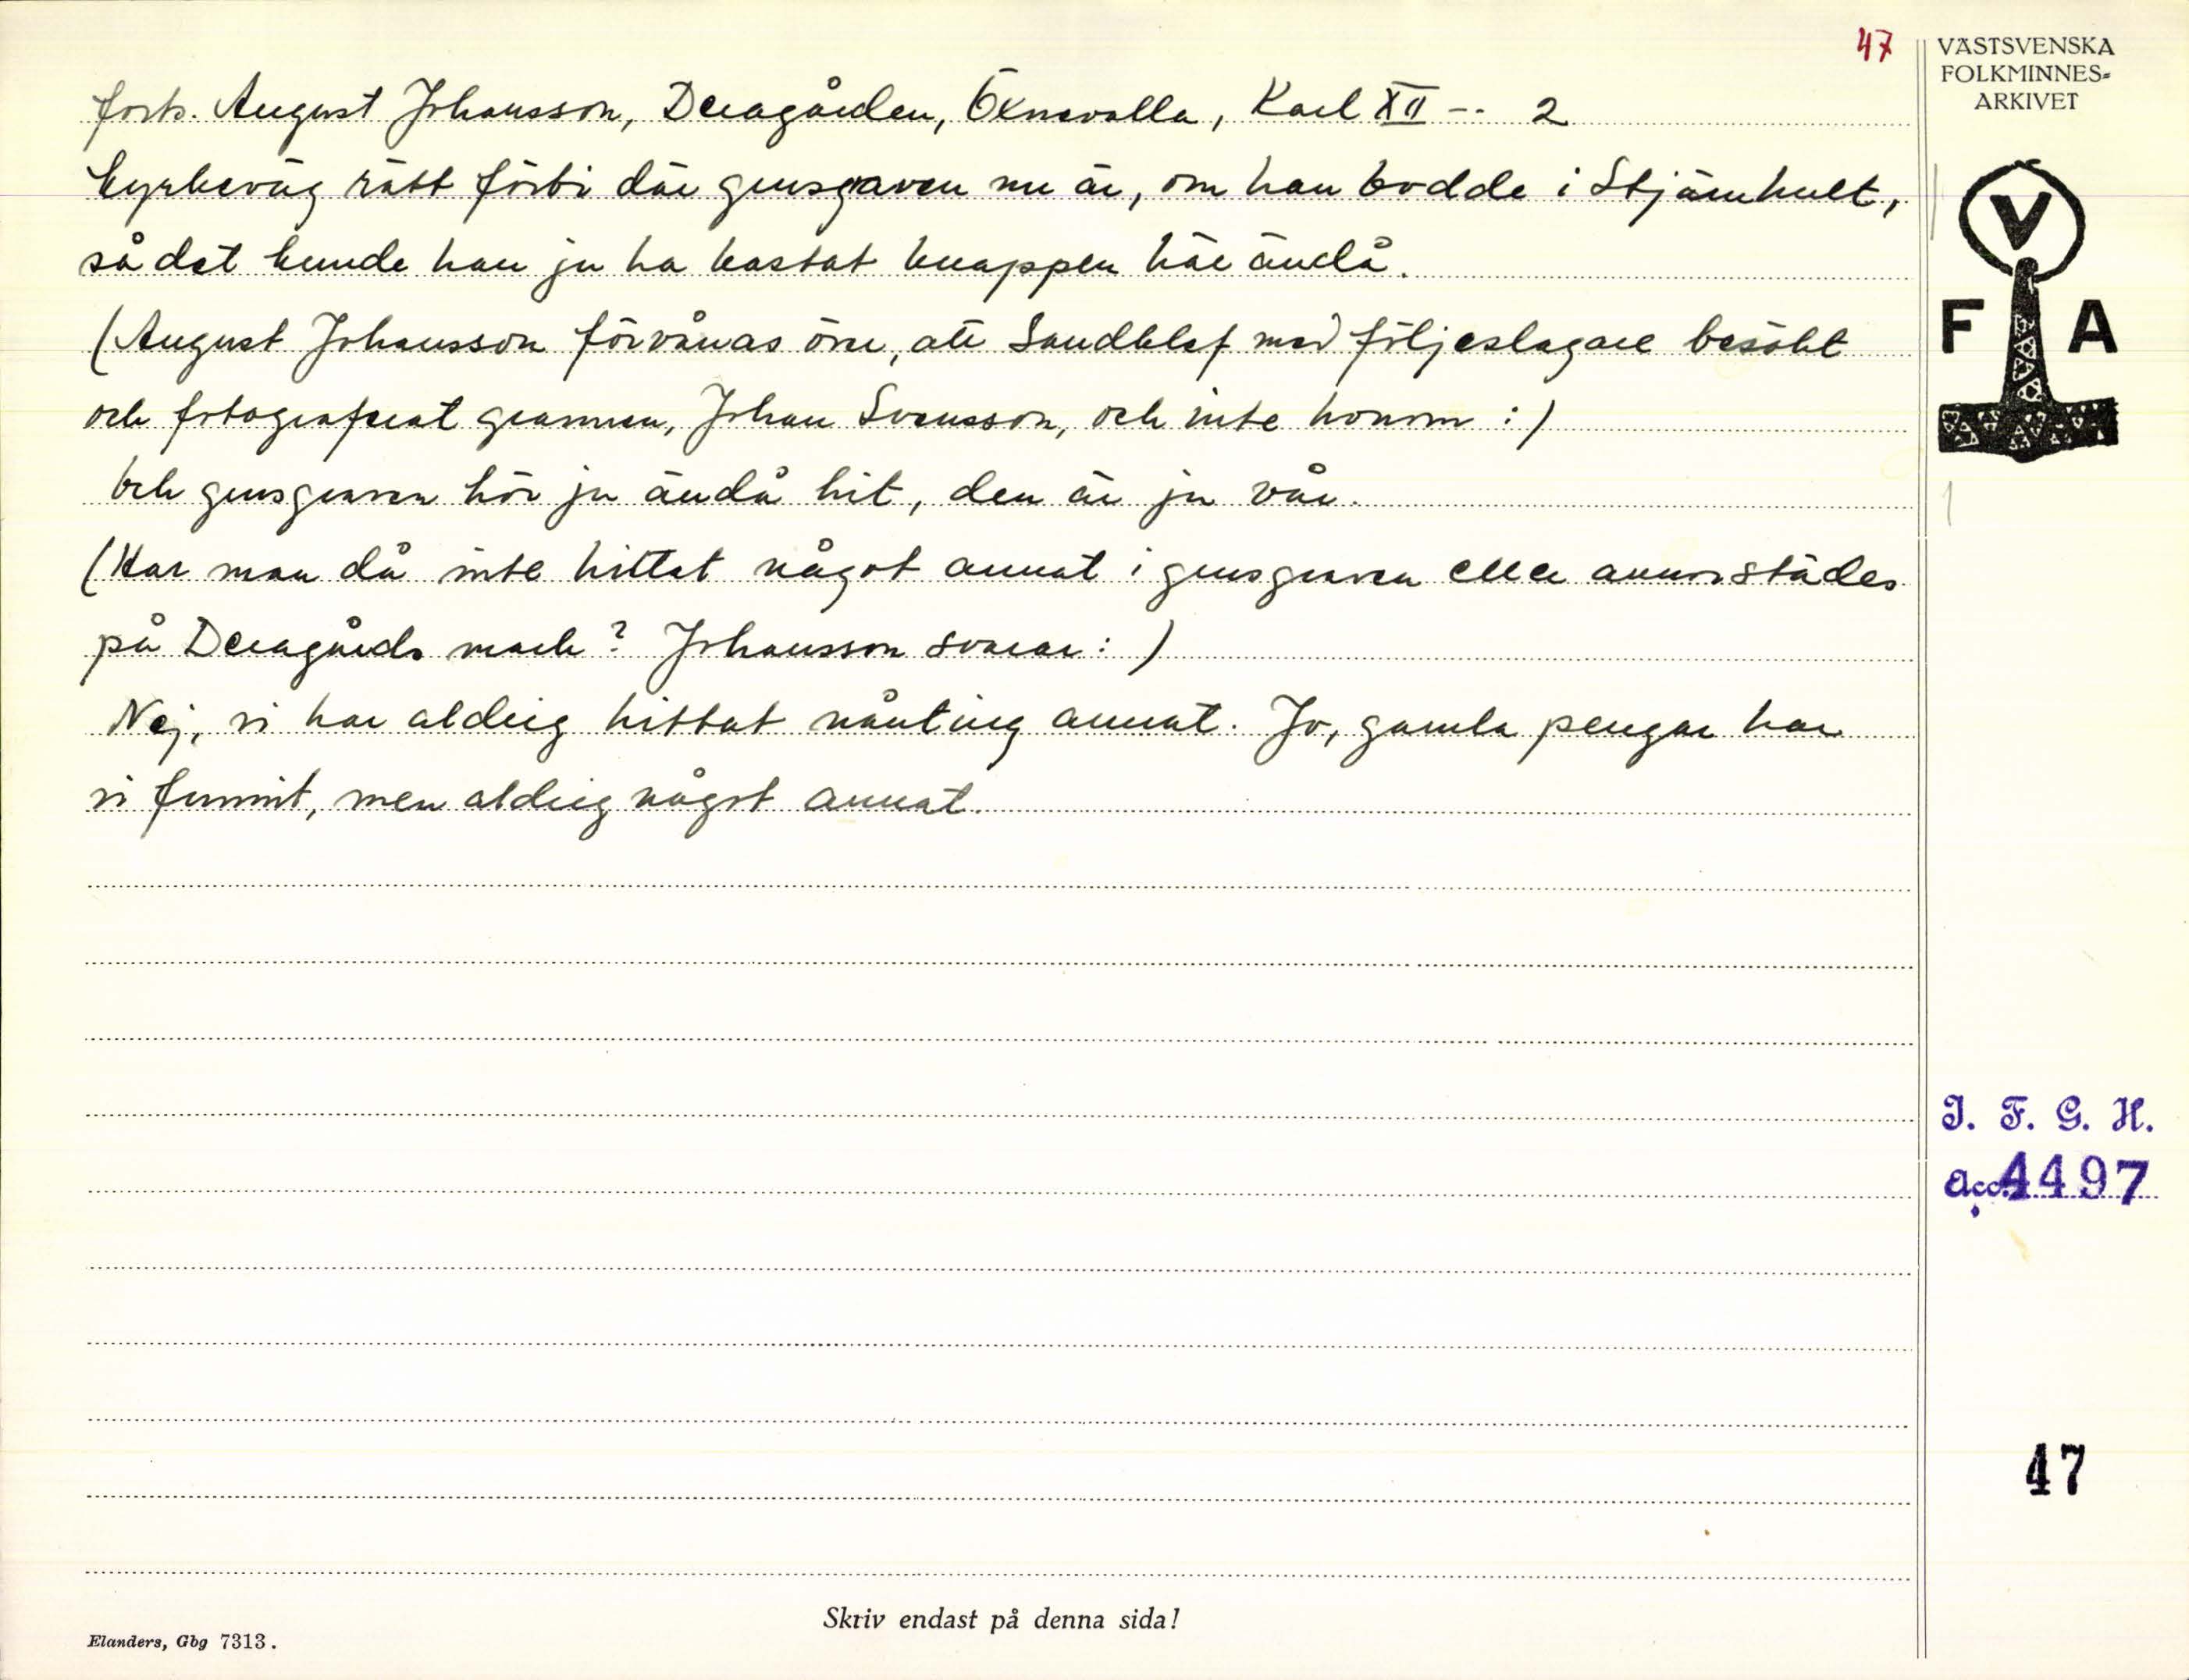 47
VÄSTSVENSKA
FOLKMINNES-
ARKIVET
forts. August Johansson, Deragården, Öxnevalla, Karl XII -- 2
kyrkeväg rätt förbi där grusgraven nu är, om han bodde i Stjärnhult,
så det kunde han ju ha kastat knappen här ändå.
(August Johansson förvånas över, att Sandklef med följeslagare besökt
och fotograferat grannen, Johan Svensson, och inte honom:)
Och grusgraven hör ju ändå hit, den är ju vår.
(Har man då inte hittat något annat i grusgraven eller annorstädes
på Deragårds mark? Johansson svarar:)
Nej, vi har aldrig hittat nånting annat. Jo, gamla pengar har
vi funnit, men aldrig något annat.
V
F A
I. F. G. H.
Acc. 4497
47
Skriv endast på denna sida!
Elanders, Gbg 7313.